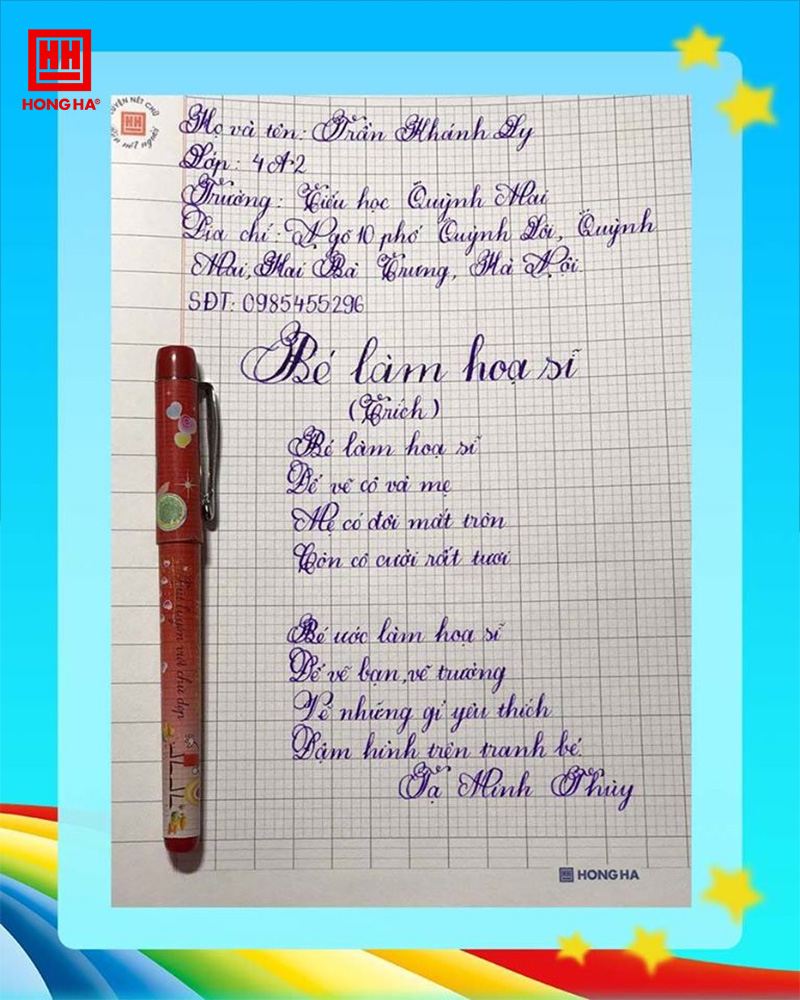 HH
HONG HA®
LUYỆN NÉT CHỮ
rèn nết người
Họ và tên: Trần Khánh Ly
Lớp: 4A2
Trường: Tiểu học Quỳnh Mai
Địa chỉ: Ngõ 10 phố Quỳnh Lôi, Quỳnh
Mai, Hai Bà Trưng, Hà Nội.
SĐT: 0985455296
Bé làm hoạ sĩ
(Trích)
Bé làm hoạ sĩ
Để vẽ cô và mẹ
Mẹ có đôi mắt tròn
Còn cô cười rất tươi
Bé ước làm hoạ sĩ
Để vẽ bạn, vẽ trường
Vẽ những gì yêu thích
Đậm hình trên tranh bé.
Tạ Minh Thủy
Bút luyện viết chữ đẹp
HONG HA